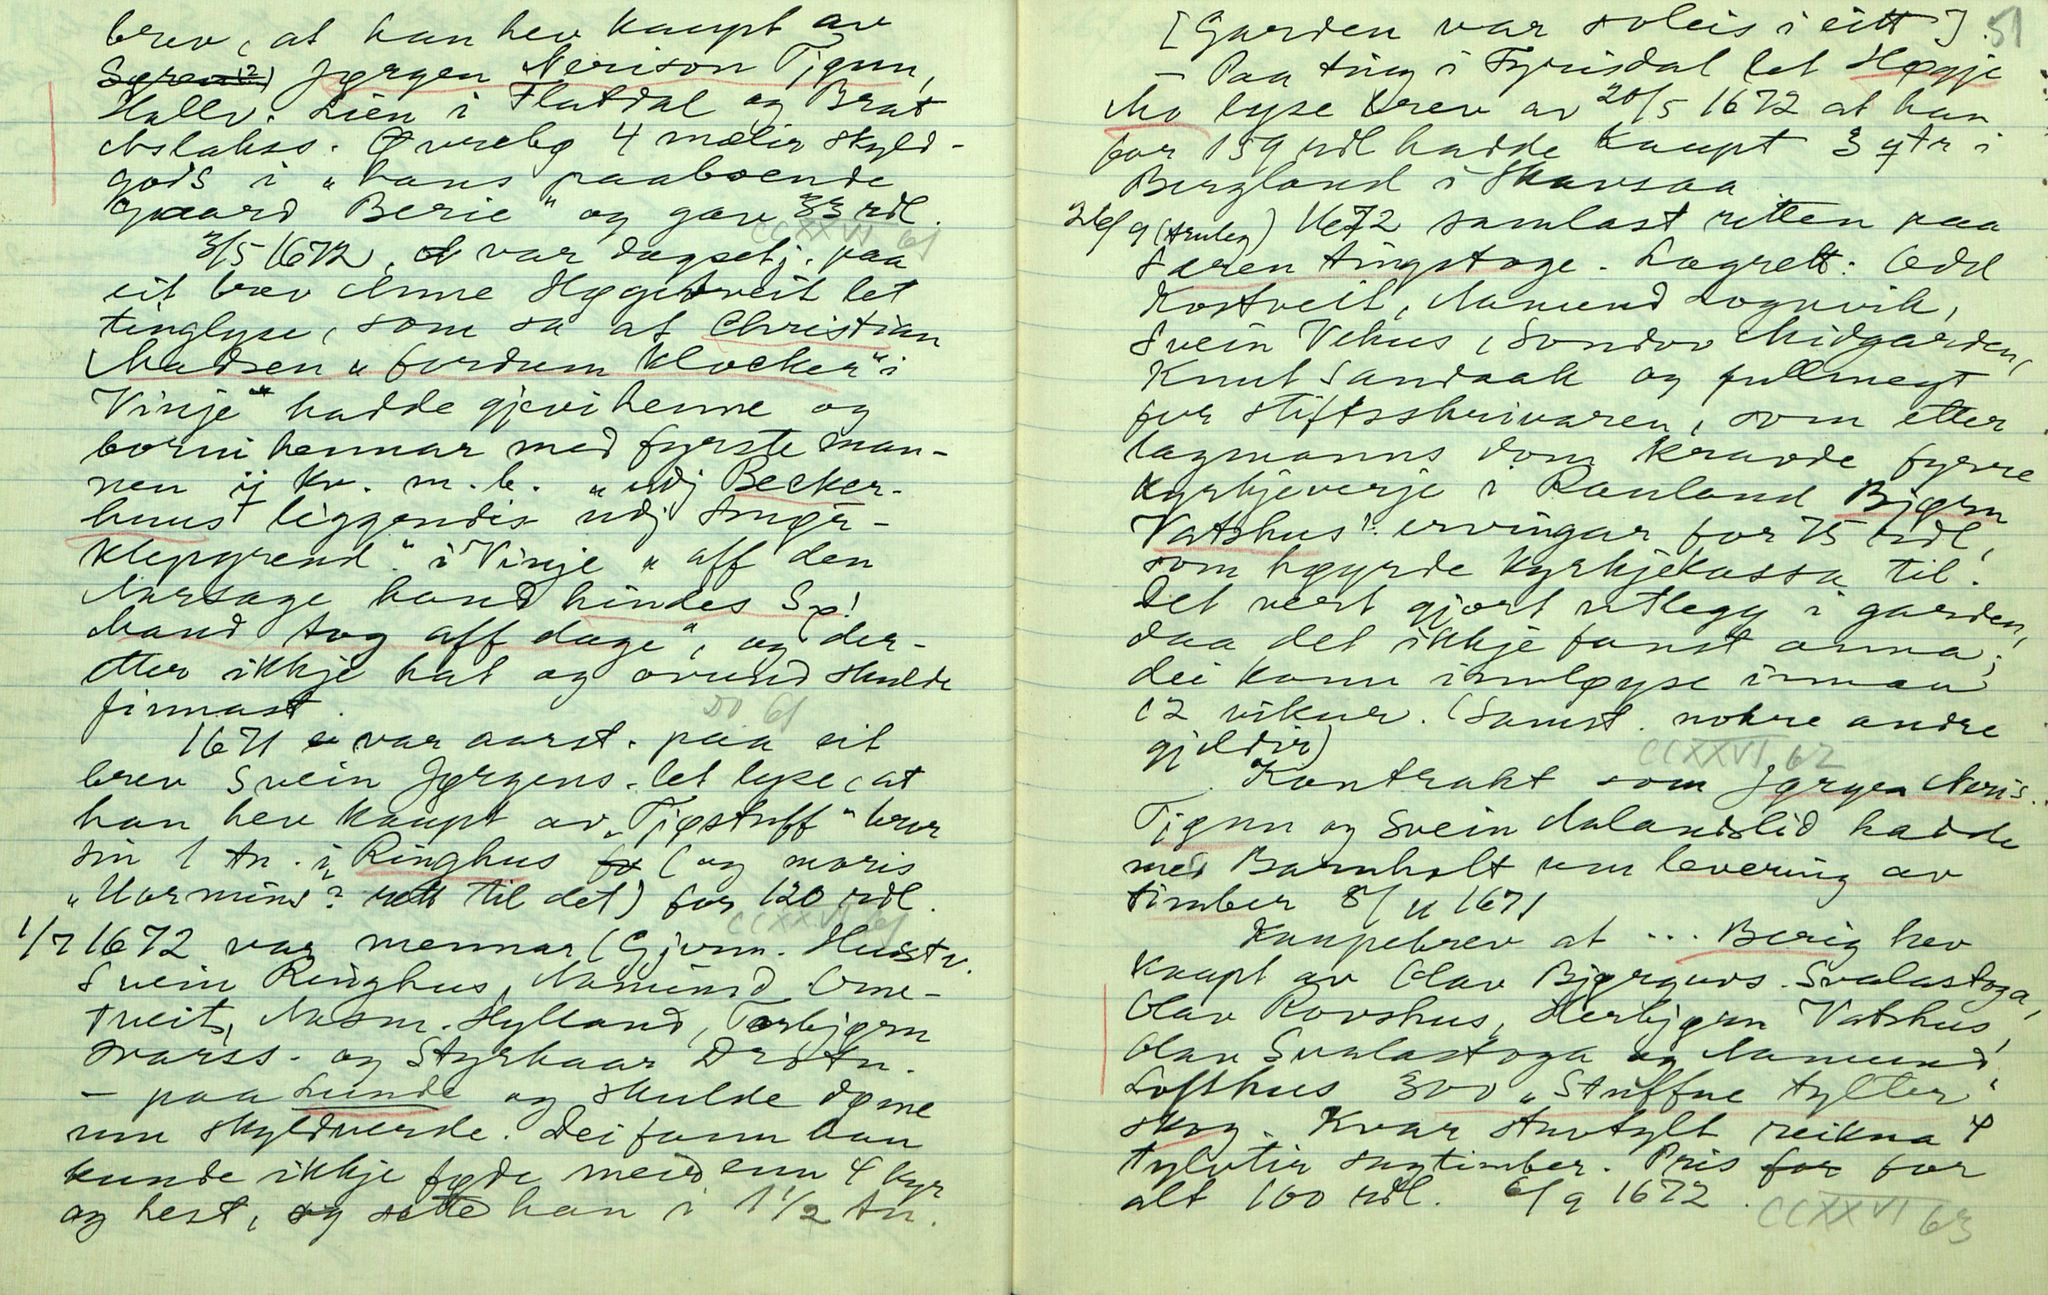 brev, at han hev kaupt av
Søren(?) Jørgen Nerison Tjønn,
Hallv. Lien i Flatdal og Brat
Aslakss. Øvrebø 4 mælir skyld-
gods i "hans paaboende
gaard Berie" og gav 33 rdl.
CCXXVI 61
3/5 1672, var dagsetj. paa
eit brev Anne Høgetveit let
tinglyse, som sa at Christian
Madsen "fordum Klocker" i
Vinje" hadde gjevi henne og
borni hennar med fyrste man-
nen ij kv. m. l. "udj Becker-
huus liggendis udj Smør-
klepgrend" i Vinje "aff den
Aarsage hand hindes S×!
Mand tog aff dage", og der-
etter ikkje hat og ovund skulde
finnast.
DO 61
1671 var aarst. paa eit
brev Svein Jørgens. let lyse, at
han hev kaupt av "Tjøstuff" bror
sin 1 tn. i Ringhus (og moris
"Mormins"? rett til det) for 120 rdl.
CCXXVI 61
1/7 1672 var mennar (Gjerm. Hustv.
Svein Ringhus, Aamund Orme-
tveit, Aasm. Hylland, Torbjørn
Svarss. og Styrkaar Drotn.
- paa Lunde og skulde døme
um skyldverde. Dei fann han
kunde ikkje føde meir enn 4 kyr
og hest, og sette han i 1 1/2 tn.
[Garden var soleis i eitt]. 51
- Paa ting i Fyrisdal let Høgje
Mo lyse brev av 20/5 1672 at han
for 159 rdl hadde kaupt 3 qtr i
Bergland i Skavsaa
26/9 (truleg) 1672 samlast retten paa
Søren tingstoge. Lagrett: Odd
Kostveit, Aamund Lognvik,
Svein Vehus, Sondov Midgarden,
Knut Sandaak og fullmegt
for stiftsskrivaren, som etter
lagmanns dom kravde fyrre
kyrkjeverje i Rauland Bjørn
Vatshus' ervingar for 75 rdl,
som høyrde kyrkjekassa til.
Det vert gjort utlegg i garden,
daa det ikkje fanst anna;
dei kann innløyse innan
12 vikur. (Samst. nokre andre
gjeldir)
CCXXVI 62
Kontrakt som Jørgen Neris.
Tjønn og Svein Aalandslid hadde
med Barnholt um levering av
timber 8/11 1671
Kaupebrev at ... Berig hev
kaupt av Olav Bjørguvs. Svalastoga,
Olav Rovshus, Herbjørn Vatshus,
Olav Svalastoga og Aamund
Lofthus 300 "Stuffne tylter"
skog. Kvar stuvtylt reikna 4
tylvtir sagtimber. Pris for for
alt 100 rdl. 6/9 1672.
CCXXVI 63